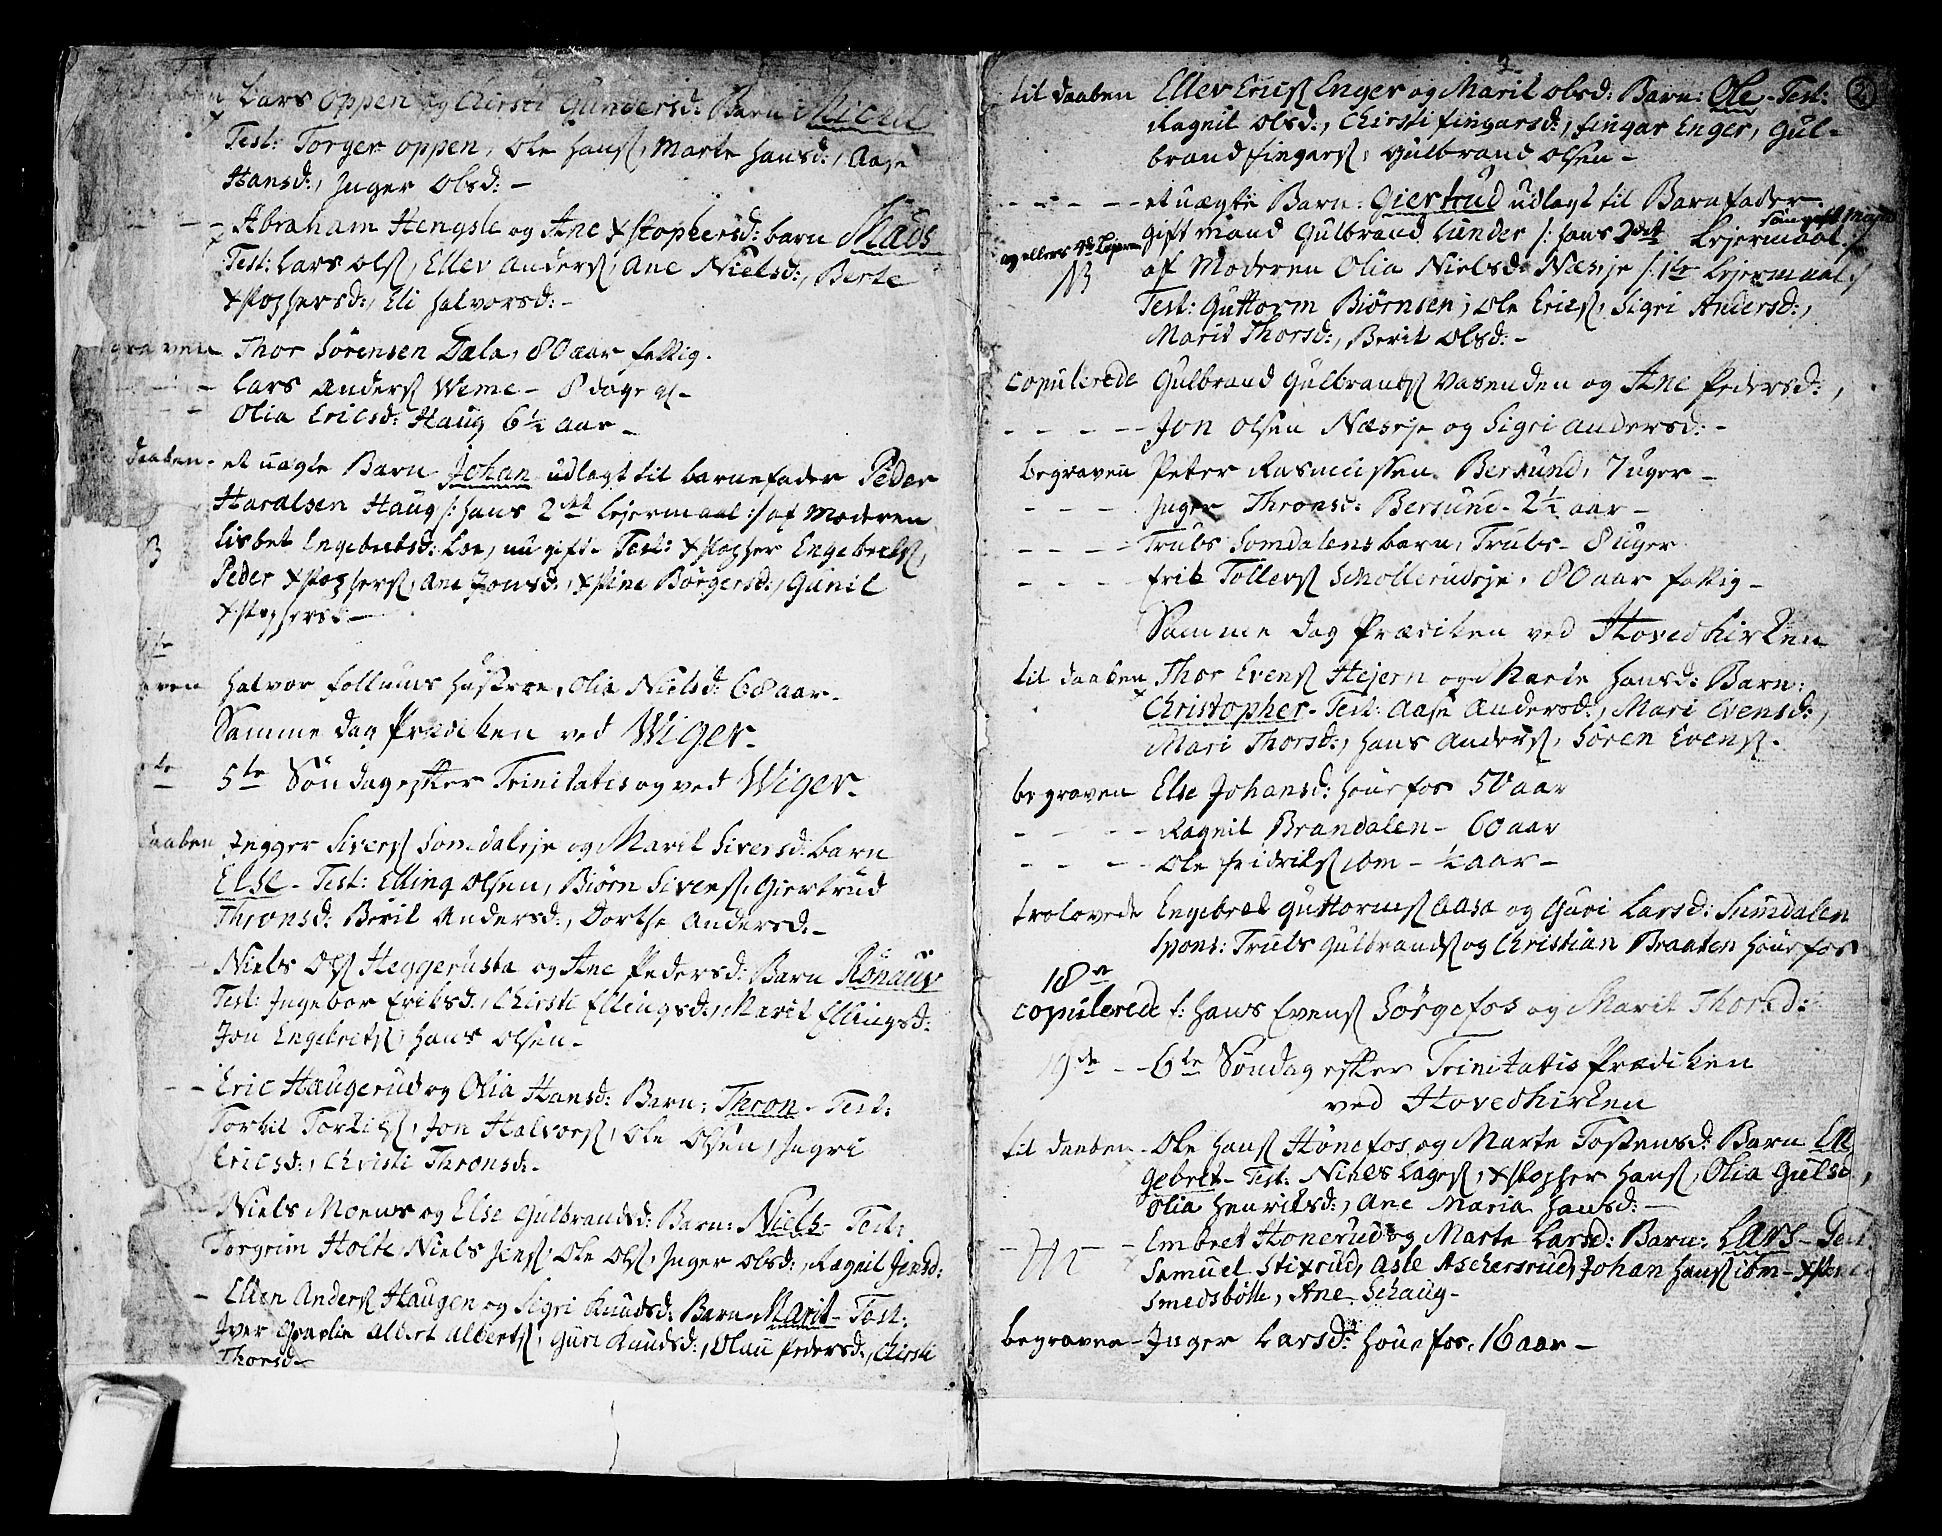 Lars Oppen og Chirsti Gundersd: Barn
Test: Torger Oppen, Ole Hansß, Marte Hansd:, Aase
Hansd:, Inger Olsd: -
- - Abraham Hengsle og Ane Xstophersd: barn Mads
Test: Lars Olsß, Ellev Andersß, Ane Nielsd:, Berte
Xstophersd:, Eli Halvorsd: -
graven Thor Sörensen Dæla, 80 aar fattig.
- Lars Andersß Weme - 8 dage gl -
- Olia Ericsd: Haug 6½ aar -
daaben - et uægte Barn Johan udlagt til barnefader Peder
Haralsen Haug /: hans 2det Lejermaal :/ af Moderen
Lisbet Engebretsd: Loe, nu gift - Test: Xstopher Engebretsß,
Peder Xstophersß, Ane Jonsd:, Xstine Börgersd:, Gunil
Xstophersd: -
Halvor Follums Hustroe, Olia Nielsd: 68 aar -
Samme dag Prædiken ved Wiger -
5te Söndag efter Trinitatis og ved Wiger -
daaben Jegger Siversß Somdalseje og Marit Siversd: barn
Else - Test: Elling Olsen, Biörn Siversß, Giertrud
Thronsd: Berit Andersd:, Dorthe Andersd: -
- Niels Olsß Heggerusta og Ane Pedersd: Barn Rönnau
Test: Ingebor Eriksd:, Chirsti Ellingsd:, Marit Ellingsd:
Jon Engebretsß, Hans Olsen -
- - Eric Haugerud og Olia Hansd: Barn: Thron - Test:
Torkil Torkilsß, Jon Halvorsß, Ole Olsen, Ingri
Ericsd:, Christi Thronsd: -
- Niels Moens og Else Gulbrandsd: Barn: Niels - Test:
Torgrim Holte, Niels Jensß, Ole Olsß, Inger Olsd:, Ragnil Jensd:
- Ellen Andersß Haugen og Sigri Knudsd: Barn Marit - Test:
Iver Albert Albertsß, Guri Knudsd:, Olau Pedersd:, Chirsti
Thorsd -
2
til daaben Ellev Ericsß Enger og Marit Olsd: Barn: Ole - Test:
Ragnil Olsd:, Chirsti Fingarsd:, Fingar Enger, Gul-
brand Fingarsß, Gulbrand Olsen -
- - - - et uægte Barn: Giertrud udlagt til Barnefader
gift mand Gulbrand Lunder /: hans 2det Lejermaal :/
af Moderen Olia Nielsd: Næseje /: 1te Lejermaal :/
Test: Guttorm Biörnsen, Ole Ericsß, Sigri Andersd:,
Marit Thorsd:, Berit Olsd: -
Copulerede Gulbrand Gulbrandsß Vasenden og Ane Pedersd:,
- - - - Jon Olsen Næseje og Sigri Andersd: -
begraven Peter Rasmussen Bersund, 7 uger -
- - - Inger Thronsd: Bersund - 2½ aar -
- - - - Trübs Somdalens barn, Trübs - 8 uger
- - - - Erik Tollersß Schollerudeje, 80 aar fattig -
Samme dag Prædiken ved Hovedkirken
til daaben Thor Evensß Hejern og Marie Hansd: Barn:
Christopher - Test: Aase Andersd:, Mari Evensd:,
Mari Thorsd:, Hans Andersß, Sören Evensß -
begraven Else Johansd: Hönefos 50 aar
- - - Ragnil Brandalen - 60 aar
- - - Ole Fridriksß ibm - ½ aar -
trolovede Engebret Guttormsß Aasa og Guri Larsd: Sumdalen
Spons: Truls Gulbrandsß og Christian Braaten Hönefos
18de
copulerede f: Hans Evensß Sörgefos og Marit Thorsd:
19de - - 6te Söndag efter Trinitatis Prædiken
ved Hovedkirken
til daaben - Ole Hansß Hönefos og Marte Tostensd: Barn En
gebret - Test: Niels Lagesß, Xstopher Hansß, Olia Gulsd:,
Olia Henriksd:, Ane Maria Hansd: -
- Embret Honerud og Marte Larsd: Barn: Lars - Test:
Samuel Stixrud, Asle Aschersrud, Johan Hansß ibm - Xstence
Smedsbötte, Ane Schaug -
begraven - Inger Larsd: Hönefos, 16 aar -